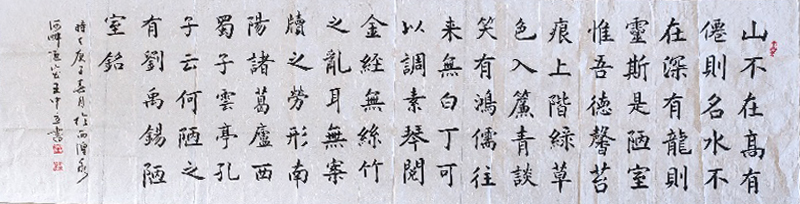 山不在高有
僊則名水不
在深有龍則
靈斯是陋室
惟吾德馨苔
痕上階綠草
色入簾青談
笑有鴻儒往
来無白丁可
以調素琴閱
金経無絲竹
之亂耳無案
牘之勞形南
陽諸葛廬西
蜀子雲亭孔
子云何陋之
有劉禹錫陋
室銘
庚子春月於西
河畔王中立書